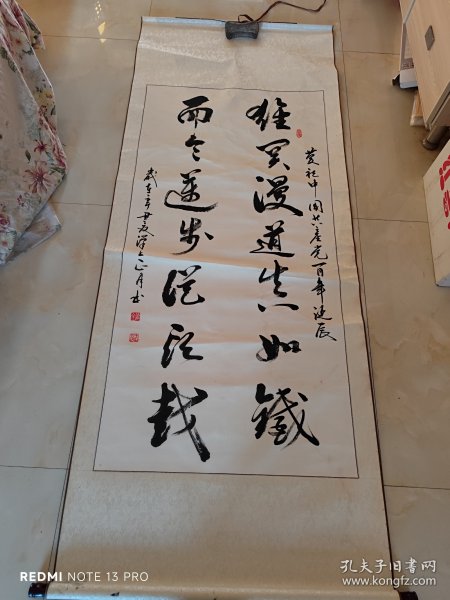 慶祝中国共産党百年诞辰
雄关漫道真如鐵
而今邁步從头越
歲在辛丑
正月书
REDMI NOTE 13 PRO
孔夫子旧书网
www.kongfz.com